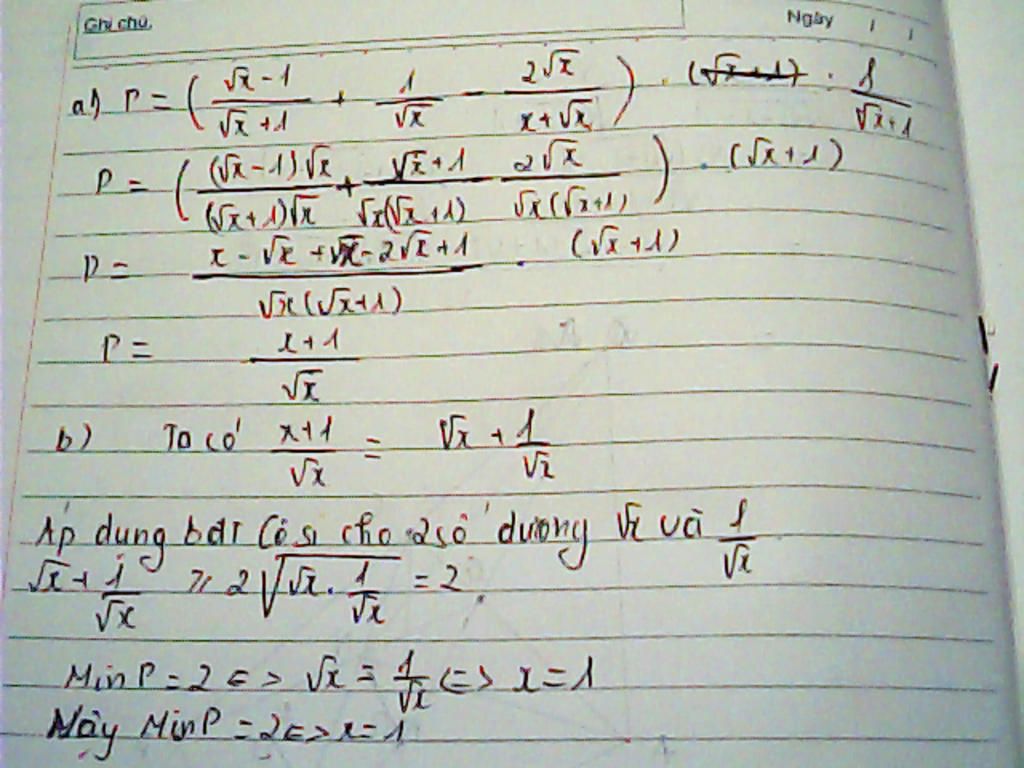 Ghi chú. Ngày / /
a) P = ( (√x - 1)/(√x + 1) + 1/√x - 2√x/(x + √x) ) . (√x + 1) . 1/(√x + 1)
P = ( (√x - 1)√x/((√x + 1)√x) + (√x + 1)/(√x(√x + 1)) - 2√x/(√x(√x + 1)) ) . (√x + 1)
P = (x - √x + √x - 2√x + 1)/(√x(√x + 1)) . (√x + 1)
P = (x + 1)/√x
b) Ta có (x + 1)/√x = √x + 1/√x
Áp dụng bđt Cô si cho 2 số dương √x và 1/√x
√x + 1/√x ≥ 2√(√x . 1/√x) = 2.
Min P = 2 <=> √x = 1/√x <=> x = 1
Vậy Min P = 2 <=> x = 1